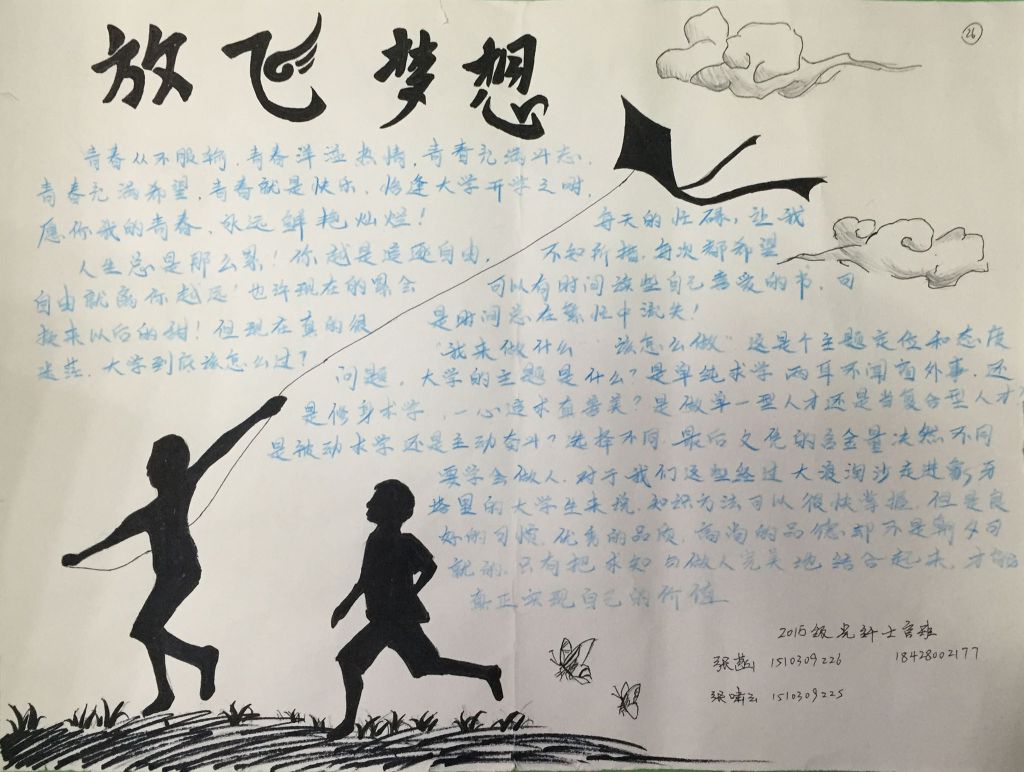 26
放飞梦想
青春从不服输，青春洋溢热情，青春充满斗志，
青春充满希望，青春就是快乐，恰逢大学开学之时，
愿你我的青春，永远鲜艳灿烂！
每天的忙碌，让我
人生总是那么累！你越是追逐自由，
不知所措，每次都希望
自由就离你越远！也许现在的累会
可以有时间读些自己喜爱的书，可
换来以后的甜！但现在真的很
是时间总在繁忙中流失！
迷茫，大学到底该怎么过？
"我来做什么""该怎么做"这是个主题定位和态度
问题，大学的主题是什么？是单纯求学，两耳不闻窗外事，还
是修身求学，一心追求真善美？是做单一型人才还是当复合型人才？
是被动求学还是主动奋斗？选择不同，最后文凭的含金量决然不同
要学会做人，对于我们这些经过大浪淘沙走进象牙
塔里的大学生来说，知识方法可以很快掌握，但是良
好的习惯，优秀的品质，高尚的品德却不是朝夕可
就的，只有把求知与做人完美地结合起来，才能
真正实现自己的价值
2015级光科士官班
张 1510309226 18428002177
张啸云 1510309225